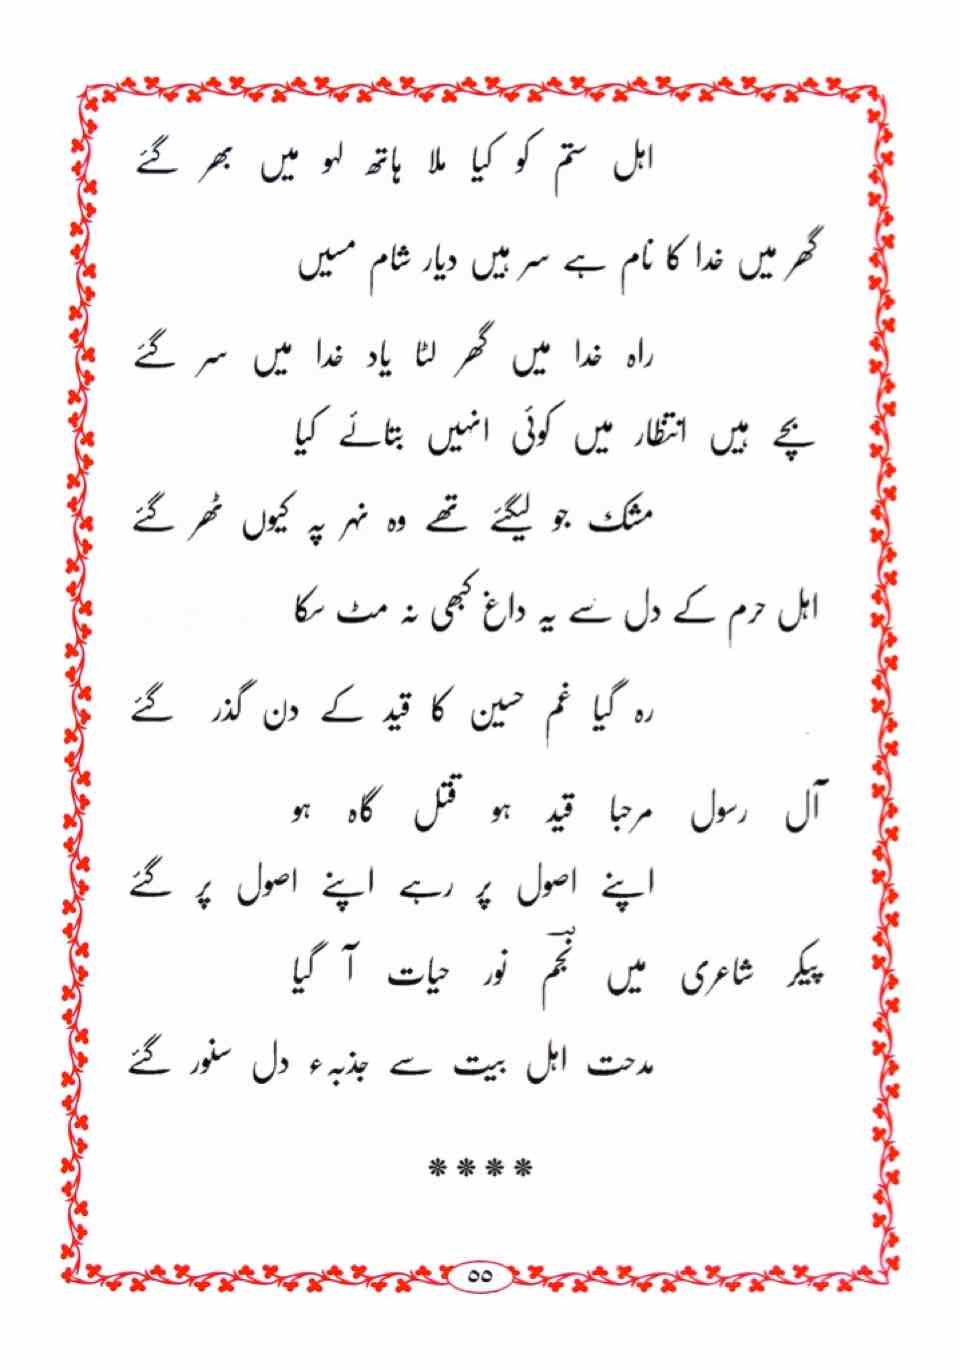 اہل ستم کو کیا ملا ہاتھ لہو میں بھر گئے
گھر میں خدا کا نام ہے سر ہیں دیار شام مسیں
راہ خدا میں گھر لٹا یاد خدا میں سر گئے
بچے ہیں انتظار میں کوئی انہیں بتائے کیا
مشک جو لیگئے تھے وہ نہر پہ کیوں ٹھر گئے
اہل حرم کے دل سے یہ داغ کبھی نہ مٹ سکا
رہ گیا غم حسین کا قید کے دن گذر گئے
آل رسول مرحبا قید ہو قتل گاہ ہو
اپنے اصول پر رہے اپنے اصول پر گئے
پیکر شاعری میں نجم نور حیات آ گیا
مدحت اہل بیت سے جذبہء دل سنور گئے
****
۵۵